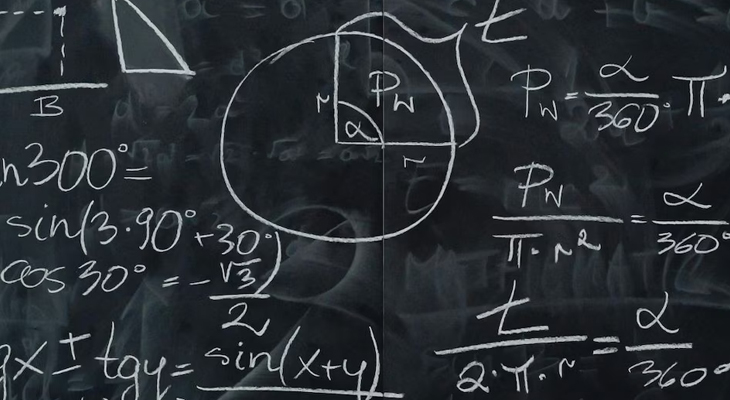 B
n300°=
sin(3·90°+30°)
cos 30° = -√3/2
gx ± tgy = sin(x+y)
t
r
P_w
α
r
P_w = α/360° π·
P_w/π·r² = α/360°
t/2·π·r = α/360°